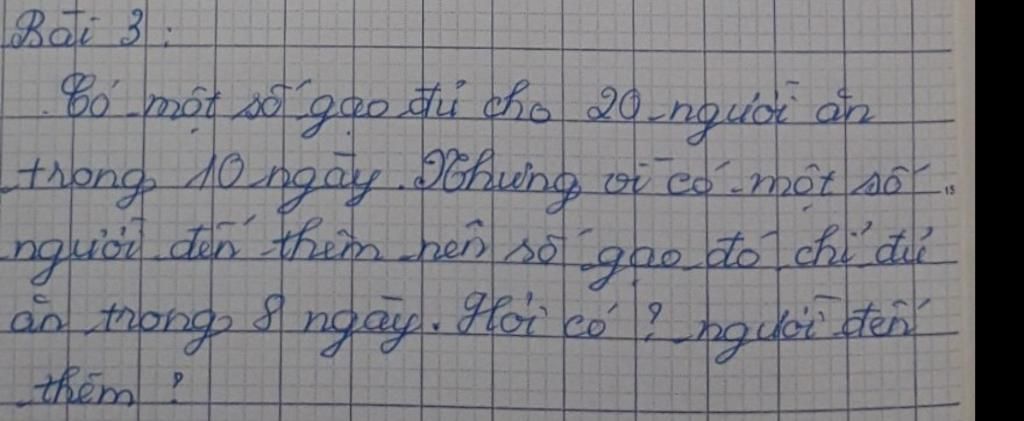 Bài 3 :
Có một số gạo đủ cho 20 người ăn
trong 10 ngày. Nhưng vì có một số
người đến thêm nên số gạo đó chỉ đủ
ăn trong 8 ngày. Hỏi có ? người đến
thêm ?